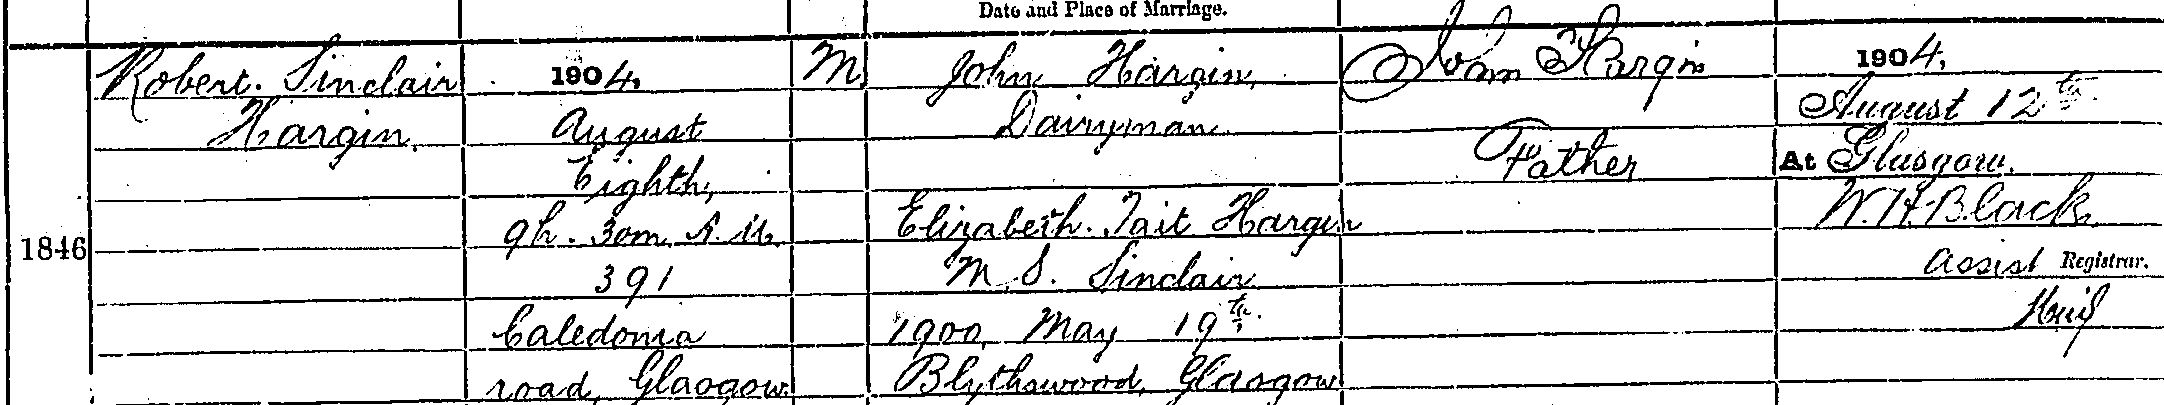 Date and Place of Marriage.
1846
Robert. Sinclair
Hargin.
1904,
August
Eighth,
9h. 30m. A.M.
391
Caledonia
road, Glasgow.
M
John Hargin,
Dairyman
Elizabeth. Tait Hargin
M.S. Sinclair
1900, May 19th.
Blythswood, Glasgow
John Hargin
Father
1904,
August 12th.
At Glasgow.
W. H. Black
Assist Registrar.